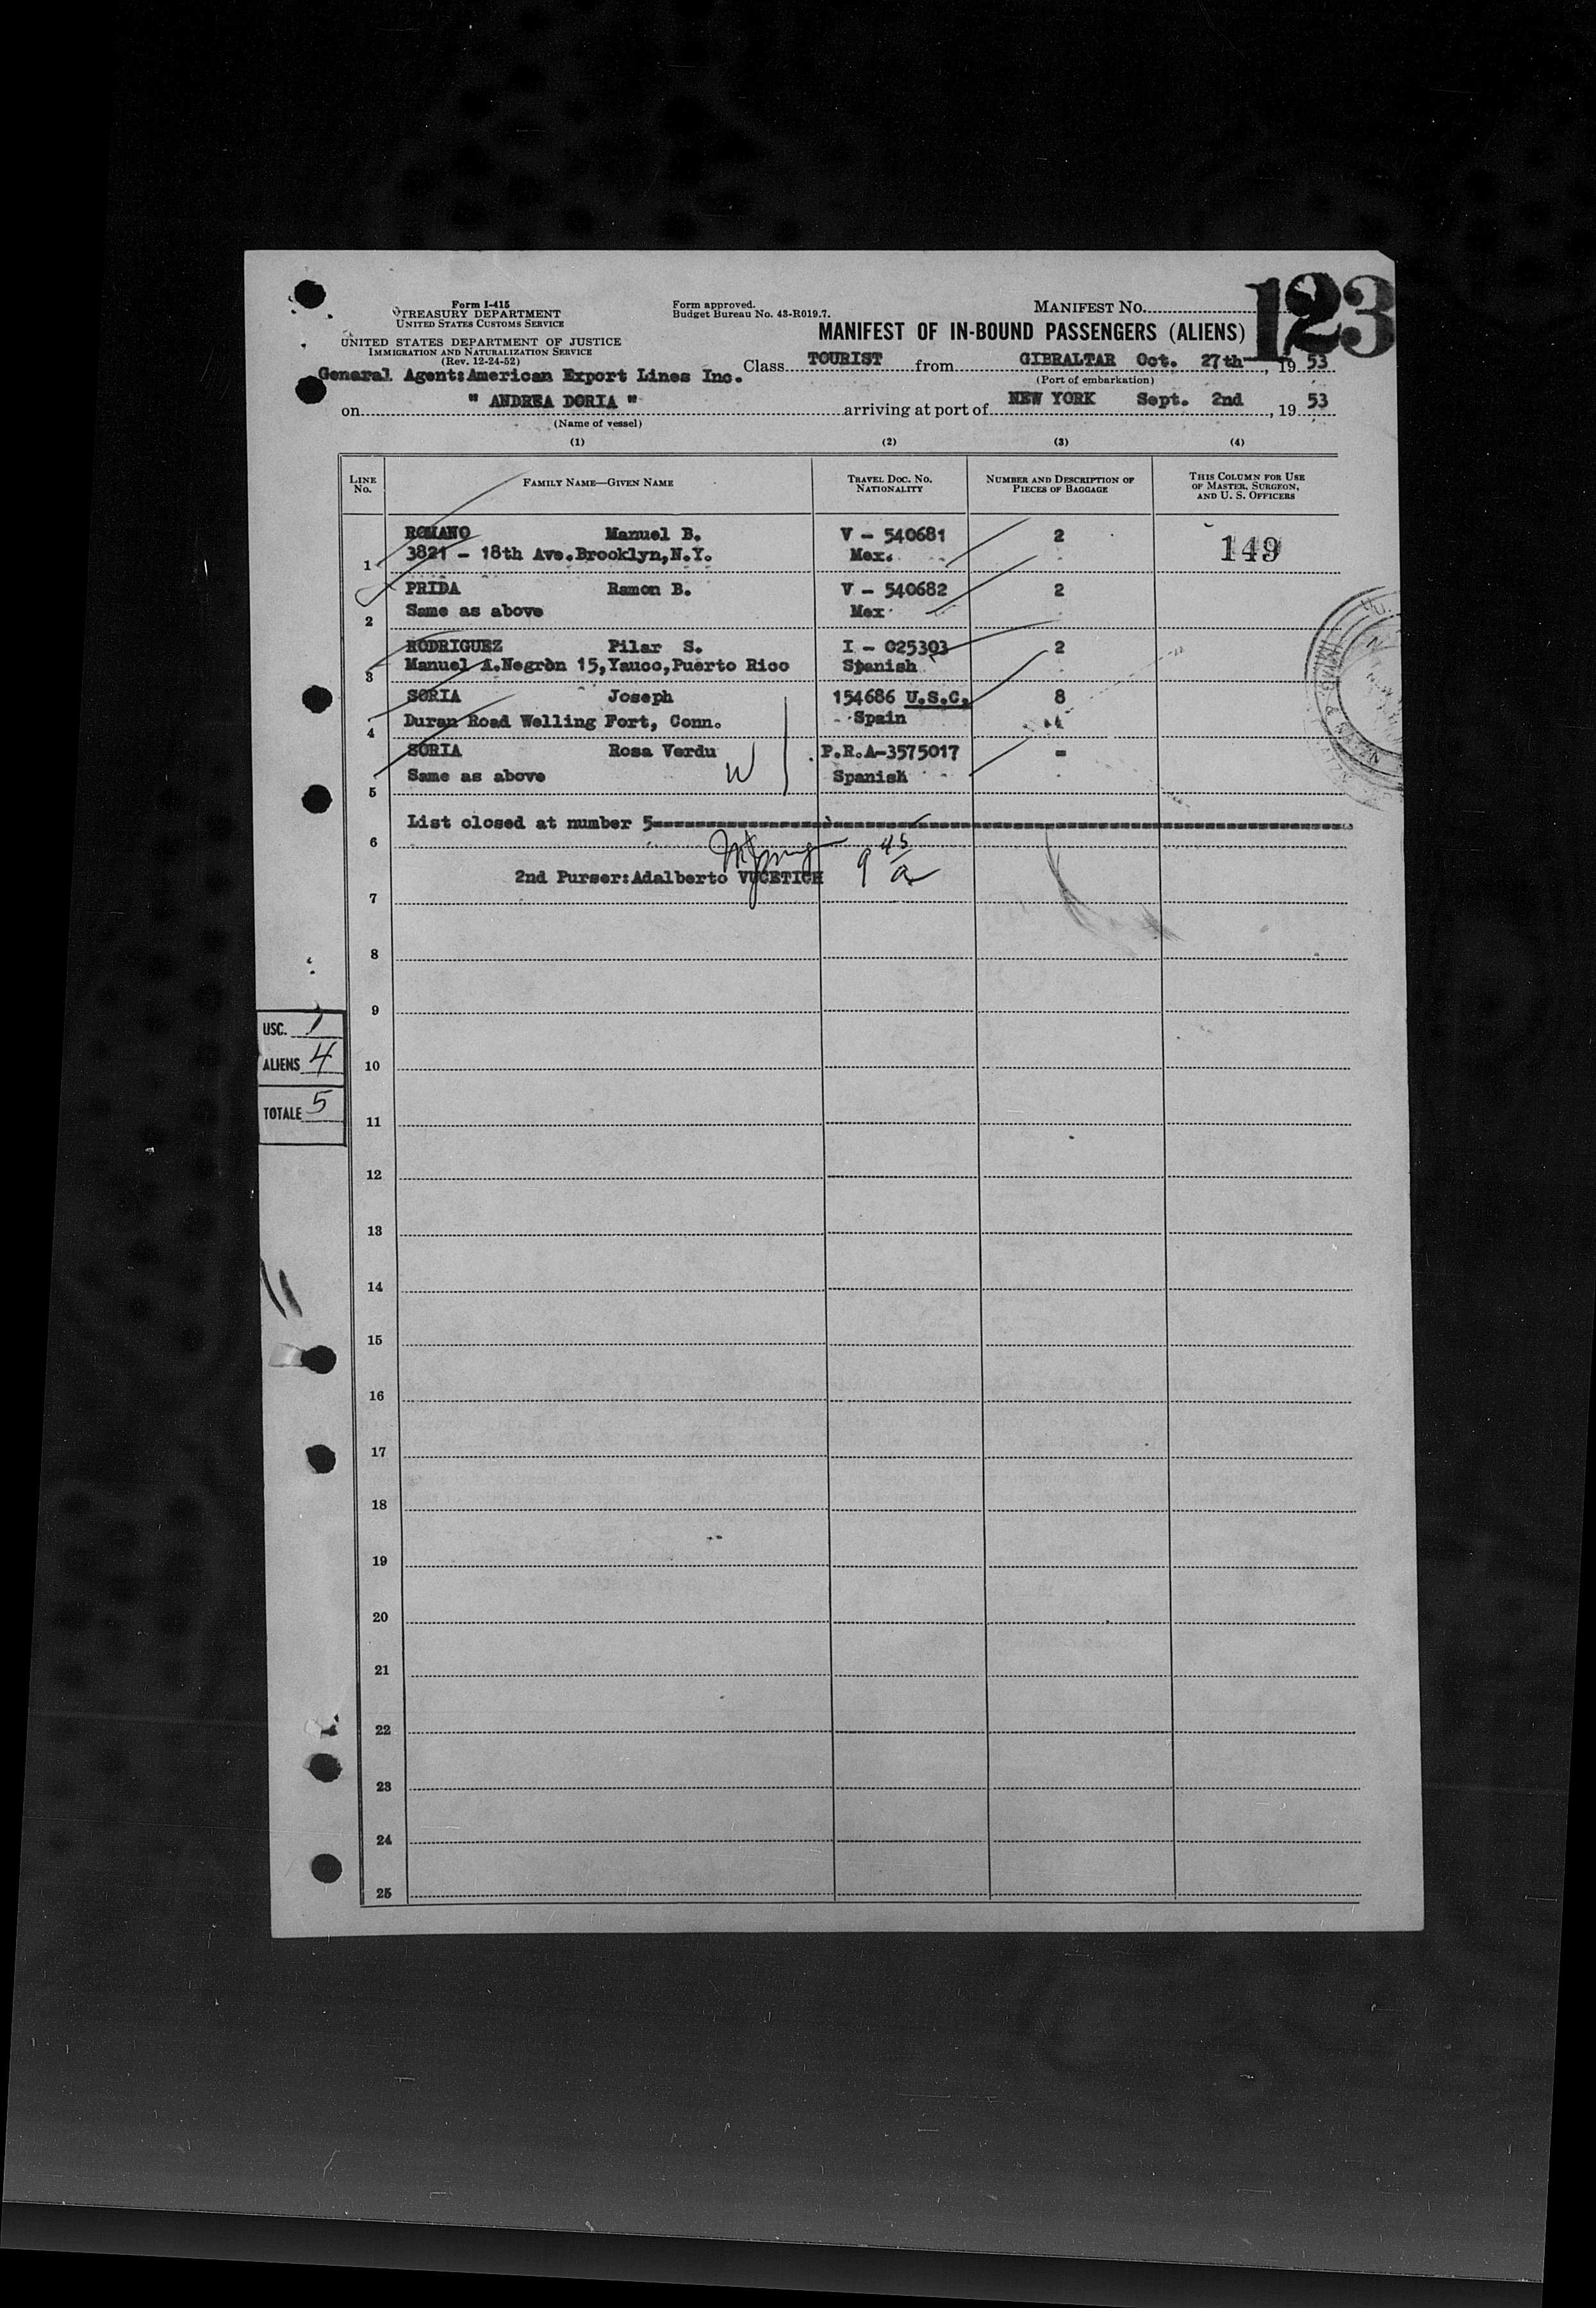 Form I-415
TREASURY DEPARTMENT
UNITED STATES CUSTOMS SERVICE
UNITED STATES DEPARTMENT OF JUSTICE
IMMIGRATION AND NATURALIZATION SERVICE
(Rev. 12-24-52)
Form approved.
Budget Bureau No. 43-R019.7.
MANIFEST No. 123
MANIFEST OF IN-BOUND PASSENGERS (ALIENS)
General Agent:American Export Lines Inc.
Class TOURIST from GIBRALTAR Oct. 27th, 19 53
(Port of embarkation)
on " ANDREA DORIA " arriving at port of NEW YORK Sept. 2nd, 19 53
(Name of vessel)
(1) (2) (3) (4)
LINE No. FAMILY NAME—GIVEN NAME TRAVEL DOC. No. NATIONALITY NUMBER AND DESCRIPTION OF PIECES OF BAGGAGE THIS COLUMN FOR USE OF MASTER, SURGEON, AND U. S. OFFICERS
ROMANO Manuel B. V - 540681 2 149
1 3821 - 18th Ave.Brooklyn,N.Y. Mex.
PRIDA Ramon B. V - 540682 2
2 Same as above Mex
RODRIGUEZ Pilar S. I - 025303 2
3 Manuel A.Negròn 15,Yauco,Puerto Rico Spanish
SORIA Joseph 154686 U.S.C. 8
4 Duran Road Welling Fort, Conn. Spain
SORIA Rosa Verdu P.R.A-3575017 =
5 Same as above W Spanish
6 List closed at number 5
9 45/a
7 2nd Purser:Adalberto VUCETICH
8
9
USC. 1
ALIENS 4
10
TOTALE 5
11
12
13
14
15
16
17
18
19
20
21
22
23
24
25